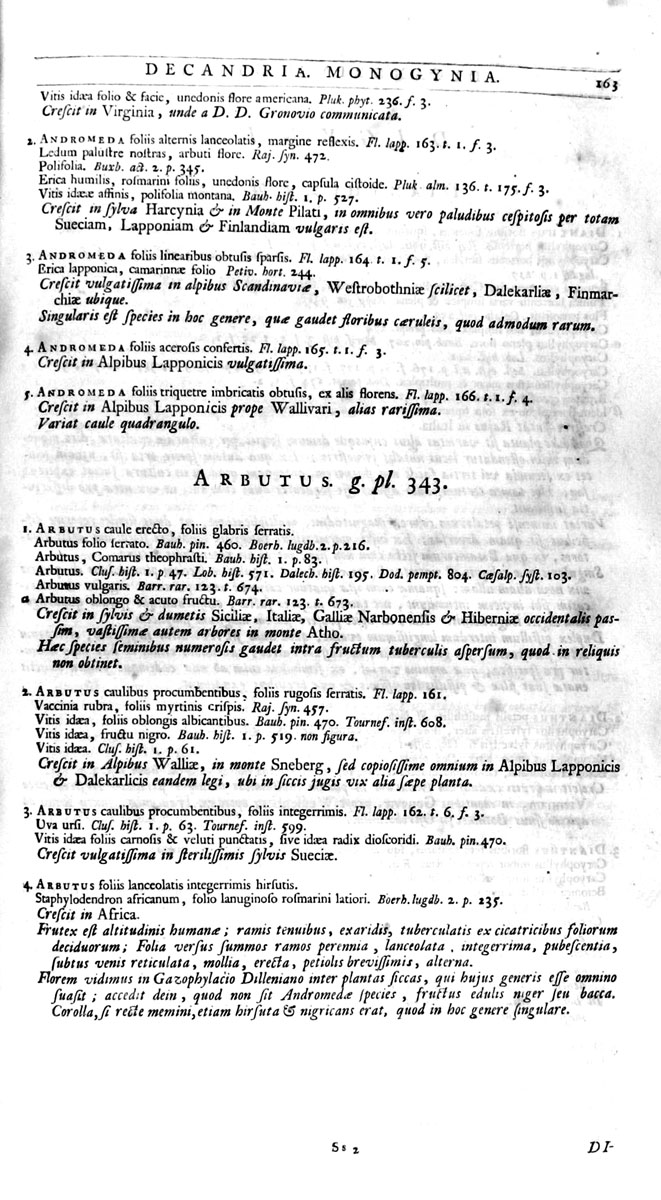 DECANDRIA. MONOGYNIA. 163
Vitis idæa folio & facie, unedonis flore americana. Pluk. phyt. 236. f. 3.
Creſcit in Virginia, unde a D. D. Gronovio communicata.
2. ANDROMEDA foliis alternis lanceolatis, margine reflexis. Fl. lapp. 163. t. 1. f. 3.
Ledum paluſtre noſtras, arbuti flore. Raj. ſyn. 472.
Polifolia. Buxb. act. 2. p. 345.
Erica humilis, roſmarini foliis, unedonis flore, capſula ciſtoide. Pluk. alm. 136. t. 175. f. 3.
Vitis idææ affinis, polifolia montana. Bauh. hiſt. 1. p. 527.
Creſcit in ſylva Harcynia & in Monte Pilati, in omnibus vero paludibus ceſpitoſis per totam
Sueciam, Lapponiam & Finlandiam vulgaris eſt.
3. ANDROMEDA foliis linearibus obtuſis ſparſis. Fl. lapp. 164 t. 1. f. 5.
Erica lapponica, camarinnæ folio Petiv. hort. 244.
Creſcit vulgatiſſima in alpibus Scandinaviæ, Weſtrobothniæ ſcilicet, Dalekarliæ, Finmar-
chiæ ubique.
Singularis eſt ſpecies in hoc genere, quæ gaudet floribus cæruleis, quod admodum rarum.
4. ANDROMEDA foliis aceroſis confertis. Fl. lapp. 165. t. 1. f. 3.
Creſcit in Alpibus Lapponicis vulgatiſſima.
5. ANDROMEDA foliis triquetre imbricatis obtuſis, ex alis florens. Fl. lapp. 166. t. 1. f. 4.
Creſcit in Alpibus Lapponicis prope Wallivari, alias rariſſima.
Variat caule quadrangulo.
ARBUTUS. g. pl. 343.
1. ARBUTUS caule erecto, foliis glabris ſerratis.
Arbutus folio ſerrato. Bauh. pin. 460. Boerh. lugdb. 2. p. 216.
Arbutus, Comarus theophraſti. Bauh. hiſt. 1. p. 83.
Arbutus. Cluſ. hiſt. 1. p 47. Lob. hiſt. 571. Dalech. hiſt. 195. Dod. pempt. 804. Cæſalp. ſyſt. 103.
Arbutus vulgaris. Barr. rar. 123. t. 674.
α Arbutus oblongo & acuto fructu. Barr. rar. 123. t. 673.
Creſcit in ſylvis & dumetis Siciliæ, Italiæ, Galliæ Narbonenſis & Hiberniæ occidentalis paſ-
ſim, vaſtiſſimæ autem arbores in monte Atho.
Hæc ſpecies ſeminibus numeroſis gaudet intra fructum tuberculis aſperſum, quod in reliquis
non obtinet.
2. ARBUTUS caulibus procumbentibus, foliis rugoſis ſerratis. Fl. lapp. 161.
Vaccinia rubra, foliis myrtinis criſpis. Raj. ſyn. 457.
Vitis idæa, foliis oblongis albicantibus. Bauh. pin. 470. Tournef. inſt. 608.
Vitis idæa, fructu nigro. Bauh. hiſt. 1. p. 519. non figura.
Vitis idæa. Cluſ. hiſt. 1. p. 61.
Creſcit in Alpibus Walliæ, in monte Sneberg, ſed copioſiſſime omnium in Alpibus Lapponicis
& Dalekarlicis eandem legi, ubi in ſiccis jugis vix alia ſæpe planta.
3. ARBUTUS caulibus procumbentibus, foliis integerrimis. Fl. lapp. 162. t. 6. f. 3.
Uva urſi. Cluſ. hiſt. 1. p. 63. Tournef. inſt. 599.
Vitis idæa foliis carnoſis & veluti punctatis, ſive idæa radix dioſcoridi. Bauh. pin. 470.
Creſcit vulgatiſſima in ſteriliſſimis ſylvis Sueciæ.
4. ARBUTUS foliis lanceolatis integerrimis hirſutis.
Staphylodendron africanum, folio lanuginoſo roſmarini latiori. Boerh. lugdb. 2. p. 235.
Creſcit in Africa.
Frutex eſt altitudinis humanæ; ramis tenuibus, exaridis, tuberculatis ex cicatricibus foliorum
deciduorum; Folia verſus ſummos ramos perennia, lanceolata, integerrima, pubeſcentia,
ſubtus venis reticulata, mollia, erecta, petiolis breviſſimis, alterna.
Florem vidimus in Gazophylacio Dilleniano inter plantas ſiccas, qui hujus generis eſſe omnino
ſuaſit; accedit dein, quod non ſit Andromedæ ſpecies, fructus edulis niger ſeu bacca.
Corolla, ſi recte memini, etiam hirſuta & nigricans erat, quod in hoc genere ſingulare.
Ss 2 DI-